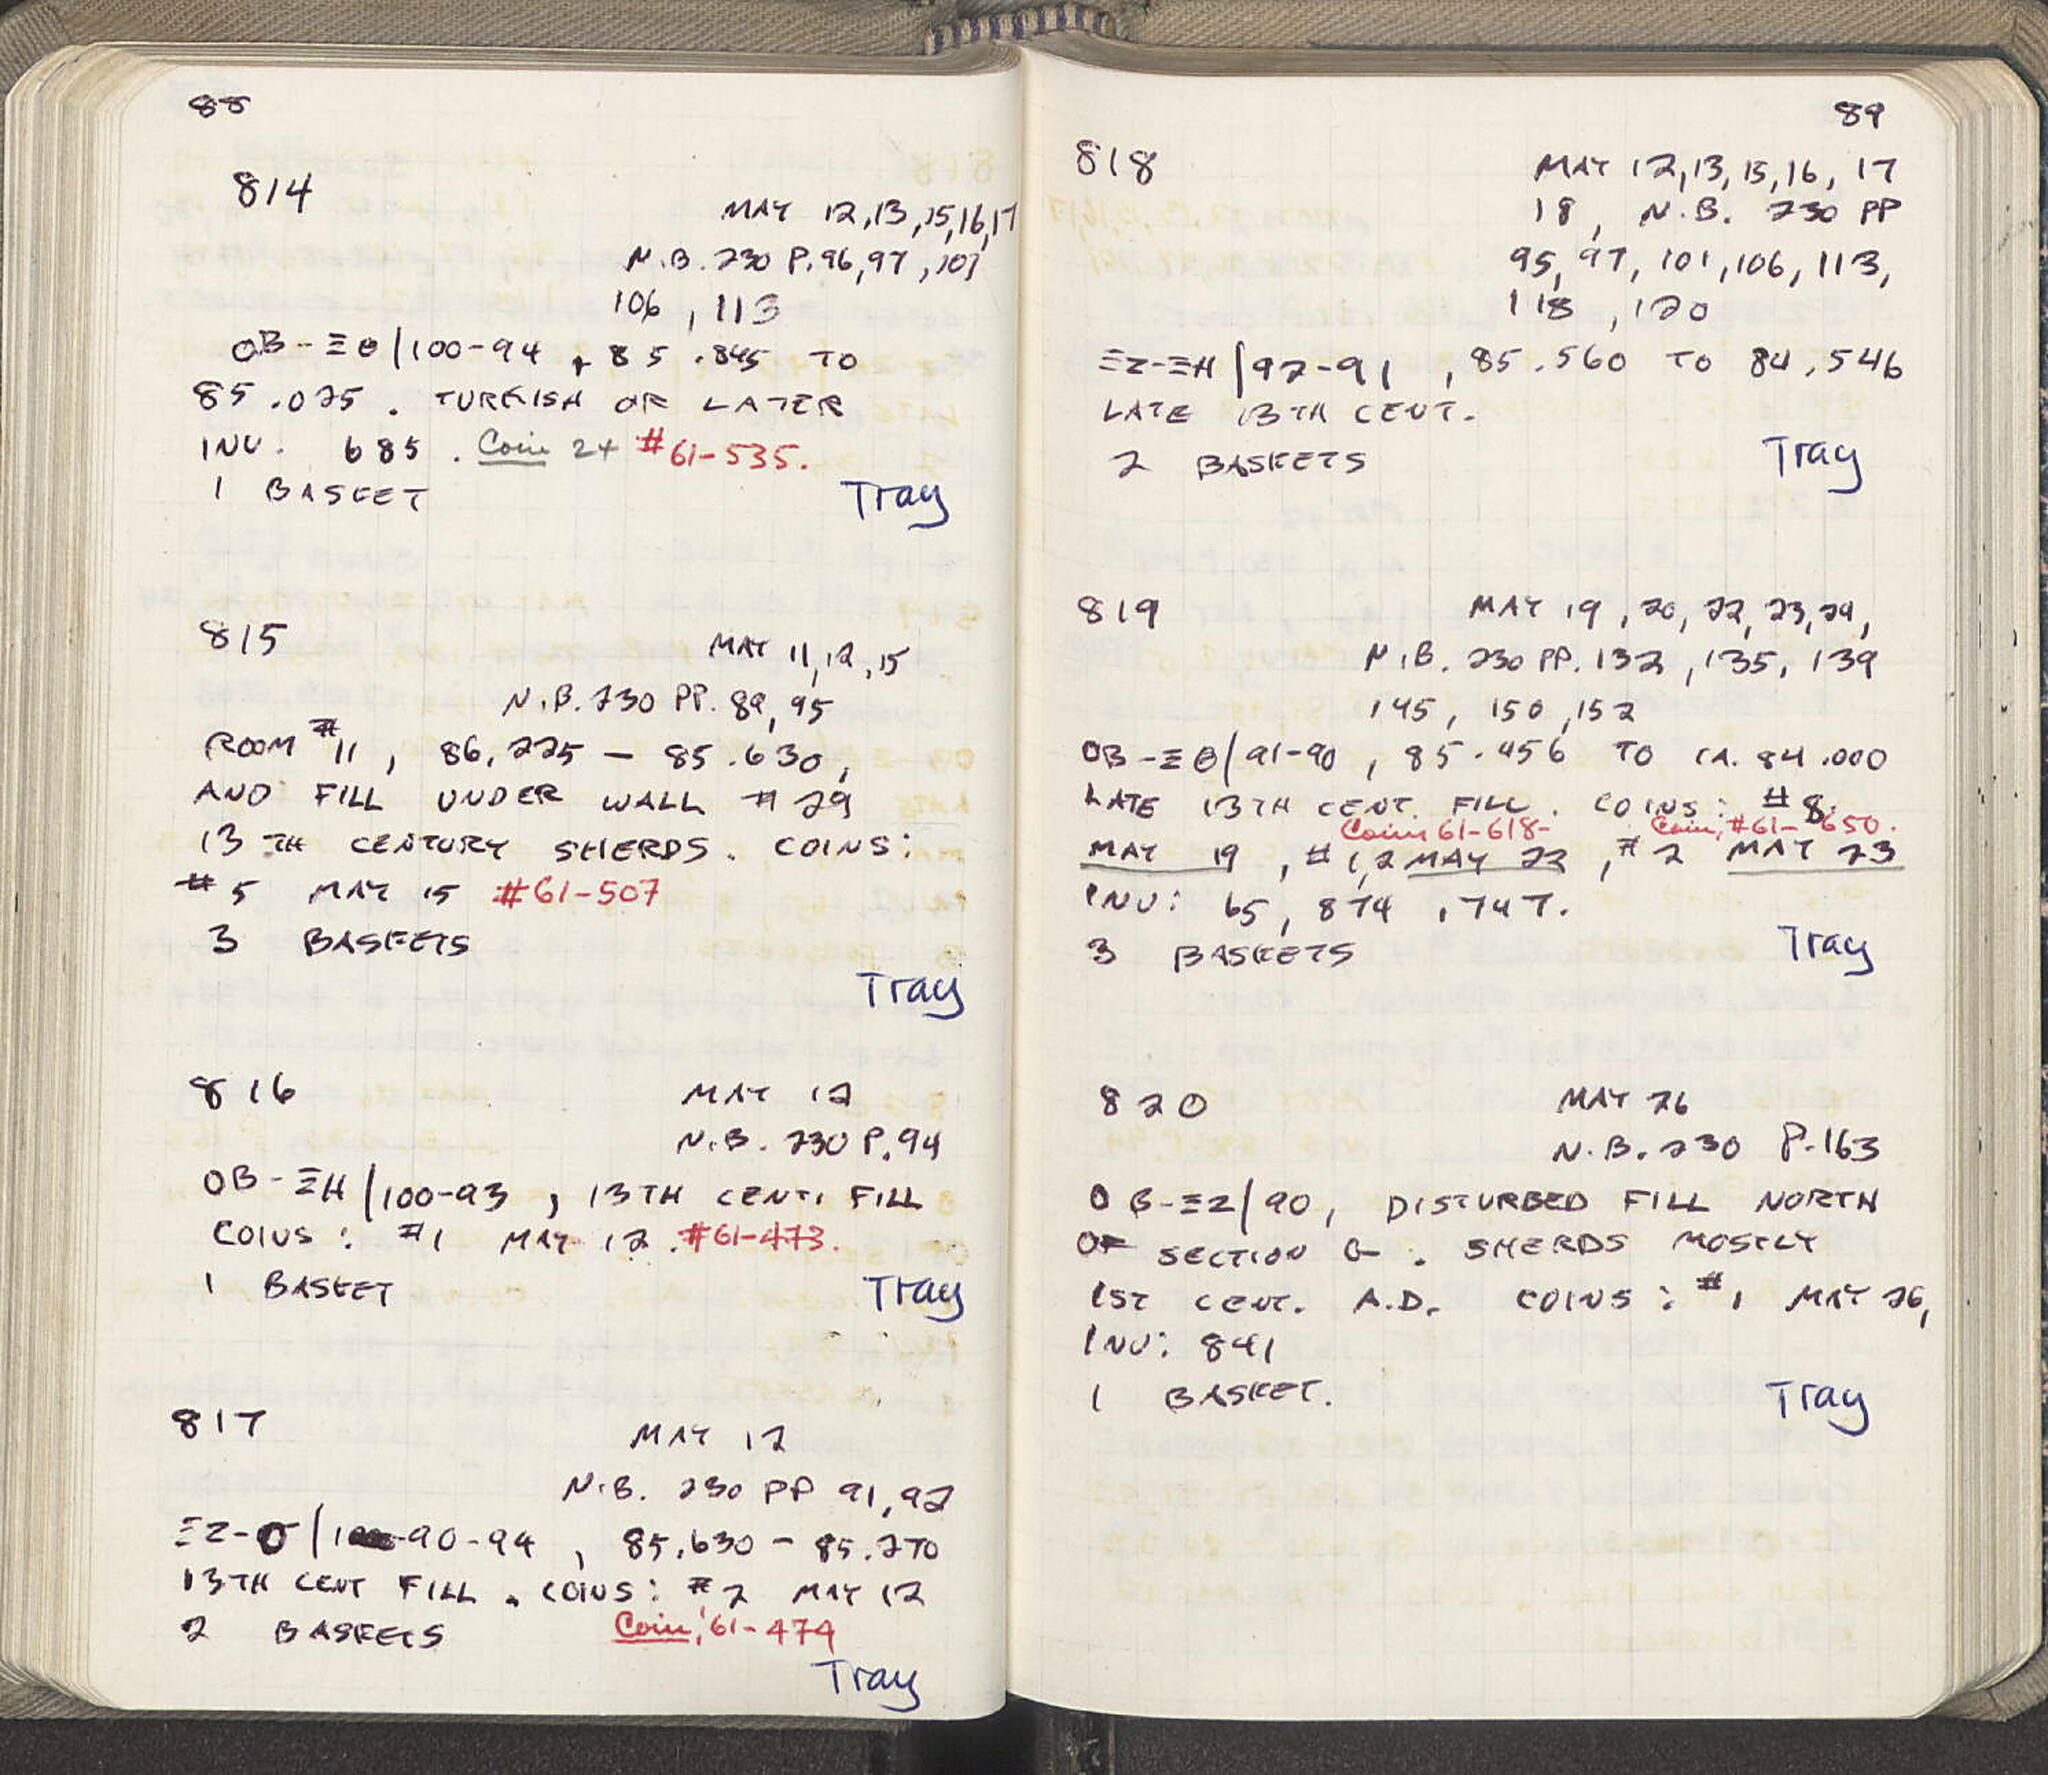 88
814
MAY 12,13,15,16,17
N.B. 230 P.96,97,101
106, 113
OB-ΞΘ/100-94, 85.845 TO
85.025. TURKISH OR LATER
INV. 685. Coin 24 #61-535.
1 BASKET
Tray
815
MAY 11,12,15
N.B. 230 PP. 89,95
ROOM #11, 86.225 – 85.630,
AND FILL UNDER WALL #29
13TH CENTURY SHERDS. COINS:
#5 MAY 15 #61-507
3 BASKETS
Tray
816
MAY 12
N.B. 230 P.94
OB-ΞH/100-93, 13TH CENT. FILL
COINS: #1 MAY 12. #61-473.
1 BASKET
Tray
817
MAY 12
N.B. 230 PP 91,92
ΞZ-O/90-94, 85.630 – 85.270
13TH CENT FILL. COINS: #2 MAY 12
2 BASKETS Coin: 61-474
Tray
89
818
MAY 12,13,15,16, 17
18, N.B. 230 PP
95, 97, 101, 106, 113,
118, 120
ΞZ-ΞH/92-91, 85.560 TO 84.546
LATE 13TH CENT.
2 BASKETS
Tray
819
MAY 19, 20, 22, 23, 24,
N.B. 230 PP. 132, 135, 139
145, 150, 152
OB-ΞΘ/91-90, 85.456 TO CA. 84.000
LATE 13TH CENT. FILL. COINS: #8.
Coins 61-618- Coin, #61-650.
MAY 19, #1,2 MAY 22, #2 MAY 23
INV: 65, 874, 747.
3 BASKETS
Tray
820
MAY 26
N.B. 230 P.163
OB-ΞZ/90, DISTURBED FILL NORTH
OF SECTION G. SHERDS MOSTLY
1ST CENT. A.D. COINS: #1 MAY 26,
INV: 841
1 BASKET.
Tray